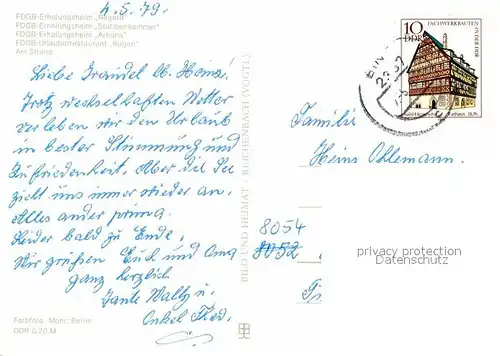 4.5.79.
FDGB-Erholungsheim „Rugard"
FDGB-Erholungsheim „Stubbenkammer"
FDGB-Erholungsheim „Arkona"
FDGB-Urlauberrestaurant „Rügen"
Am Strand
Liebe Traudel lb. Heinz!
Trotz wechselhaften Wetter
verleben wir den Urlaub
in bester Stimmung und
Zufriedenheit. Aber die See
zieht uns immer wieder an.
Alles andere prima.
Leider bald zu Ende.
Wir grüßen Euch und
ganz herzlich
Tante u.
Onkel
Farbfoto: Mohr, Berlin
DDR 0,20 M
BILD UND HEIMAT REICHENBACH (VOGTL)
10
DDR
FACHWERKBAUTEN
IN DER DDR
2337
Familie
Heinz Ohlemann.
8054
8052
privacy protection
Datenschutz